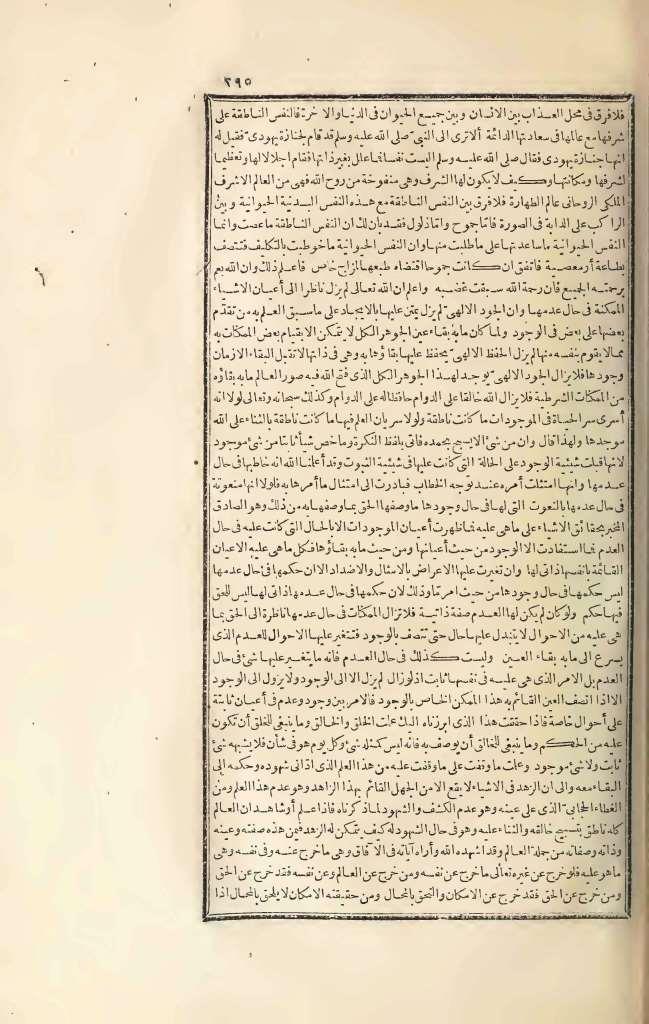 ٢٩٥
فلا فرق فى محل العذاب بين الانسان وبين جميع الحيوان فى الدنيا والا خرة فالنفس الناطقة على
شرفها مع عالمها فى سعادتها الدائمة ألا ترى الى النبىّ صلى الله عليه وسلم قد قام لجنازة يهودى فقيل له
انها جنازة يهودى فقال صلى الله عليه وسلم اليست نفسا فما علل بغير ذاتها فقام اجلالا لها وتعظيما
لشرفها ومكانتها وكيف لا يكون لها الشرف وهى منفوخة من روح الله فهى من العالم الاشرف
الملكى الروحانى عالم الطهارة فلا فرق بين النفس الناطقة مع هذه النفس البدنية الحيوانية وبين
الراكب على الدابة فى الصورة فاما جموح واما ذلول فقد بان لك ان النفس الناطقة ما عصت وانما
النفس الحيوانية ما ساعدتها على ما طلبت منها وان النفس الحيوانية ما خوطبت بالتكليف فتتصف
بطاعة أو معصية فاتفق ان كانت جموحا اقتضاه طبعها لمزاج خاص فاعلم ذلك وان الله يعم
برحمته الجميع فان رحمة الله سبقت غضبه واعلم ان الله تعالى لم يزل ناظرا الى أعيان الاشياء
الممكنة فى حال عدمها وان الجود الالهى لم يزل يمتن عليها بالايجاد على ما سبق العلم به من تقدّم
بعضها على بعض فى الوجود ولما كان ما به بقاء عين الجوهر الكل لا يتمكن الا بقيام بعض الممكنات به
مما لا يقوم بنفسه منها لم يزل الحفظ الالهى يحفظ عليها بقاؤها به وهى فى ذاتها لا تقبل البقاء الا زمان
وجودها فلا يزال الجود الالهى يوجد لهذا الجوهر الكل الذى فتح الله فيه صور العالم ما به بقاؤه
من الممكنات الشرطية فلا يزال الله خالقا على الدوام حافظا له على الدوام وكذلك سبحانه وتعالى لولا انه
أسرى سر الحياة فى الموجودات ما كانت ناطقة ولولا سريان العلم فيها ما كانت ناطقة بالثناء على الله
موجدها ولهذا قال وان من شئ الا يسبح بحمده فاتى بلفظ النكرة وما خص شيأ ثابتا من شئ موجود
لانها قبلت شيئية الوجود على الحالة التى كانت عليها فى شيئية الثبوت وقد أعلمنا الله انه خاطبها فى حال
عدمها وانها امتثلت أمره عند توجه الخطاب فبادرت الى امتثال ما أمرها به فلولا انها منعوتة
فى حال عدمها بالنعوت التى لها فى حال وجودها ما وصفها الحق بما وصفها به من ذلك وهو الصادق
المخبر بحقائق الاشياء على ما هى عليه فما ظهرت أعيان الموجودات الا بالحال التى كانت عليه فى حال
العدم فما استفادت الا الوجود من حيث أعيانها ومن حيث ما به بقاؤها فكل ما هى عليه الاعيان
القائمة بانفسها ذاتى لها وان تغيرت عليها الاعراض بالامثال والاضداد الا ان حكمها فى حال عدمها
ليس حكمها فى حال وجودها من حيث امر تما وذلك لان حكمها فى حال عدمها ذاتى لها ليس للحق
فيها حكم ولو كان لم يكن لها العدم صفة ذاتية فلا تزال الممكنات فى حال عدمها ناظرة الى الحق بما
هى عليه من الاحوال لا يتبدل عليها حال حتى تتصف بالوجود فتتغير عليها الاحوال للعدم الذى
يسرع الى ما به بقاء العين وليست كذلك فى حال العدم فانه ما يتغير عليها شئ فى حال
العدم بل الامر الذى هى عليه فى نفسها ثابت اذ لو زال لم يزل الا الى الوجود ولا يزول الى الوجود
الا اذا اتصف العين القائم به هذا الممكن الخاص بالوجود فالامر بين وجود وعدم فى أعيان ثابتة
على أحوال خاصة فاذا حققت هذا الذى ابرزناه اليك علمت الخلق والخالق وما ينبغى للخلق أن تكون
عليه من الحكم وما ينبغى للخالق أن يوصف به فانه ليس كمثله شئ وكل يوم هو فى شأن فلا يشبهه شئ
ثابت ولا شئ موجود وعلمت ما وقفت على ما وقفت عليه من هذا العلم الذى اذانى شهوده وحكمه إلى
البقاء معه والى ان الزهد فى الاشياء لا يقع الا من الجهل القائم بهذا الزاهد وهو عدم هذا العلم ومن
الغطاء الحجابى الذى على عينه وهو عدم الكشف والشهود لما ذكرناه فاذا علم أو شاهد ان العالم
كله ناطق بتسبيح خالقه والثناء عليه وهو فى حال الشهود له كيف يتمكن له الزهد فيمن هذه صفته وعينه
وذاته وصفاته من جملة العالم وقد اشهده الله وأراه آياته فى الآفاق وهى ما خرج عنه وفى نفسه وهى
ما هو عليه فلو خرج عن غيره تعالى ما خرج عن نفسه ومن خرج عن العالم وعن نفسه فقد خرج عن الحق
ومن خرج عن الحق فقد خرج عن الامكان والتحق بالمحال ومن حقيقته الامكان لا يلحق بالمحال اذا